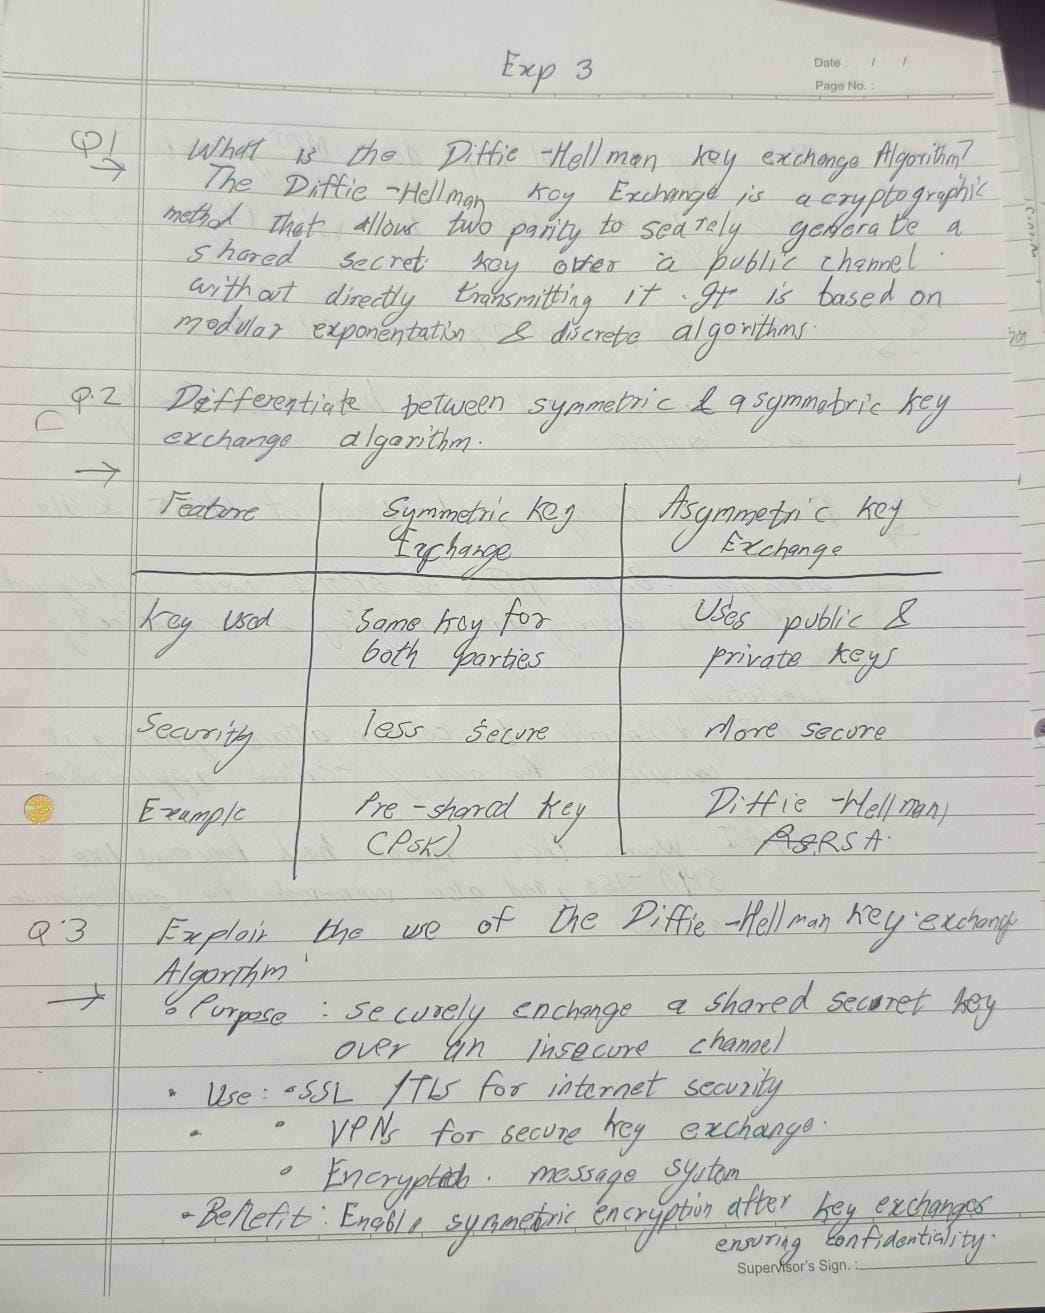 Exp 3
Date : / /
Page No. :
Q1 What is the Diffie-Hellman key exchange Algorithm?
→ The Diffie-Hellman Key Exchange is a cryptographic
method that allows two parity to searely generate a
shared secret key over a public channel
without directly transmitting it. It is based on
modular exponentation & discrete algorithms.
Q.2 Differentiate between symmetric & asymmetric key
exchange algorithm.
→
Feature Symmetric Key Exchange Asymmetric Key Exchange
Key Used Same key for both parties Uses public & private keys
Security less secure More secure
Example Pre-shared key (PSK) Diffie-Hellman, RSA
Q.3 Explain the use of the Diffie-Hellman key exchange
Algorthm
→ • Purpose : securely enchange a shared secret key
over an insecure channel
• Use : • SSL /TLS for internet security
• VPNs for secure key exchange.
• Encrypted message system
• Benefit : Enable symmetric encryption after key exchanges
ensuring confidentiality.
Supervisor's Sign. :